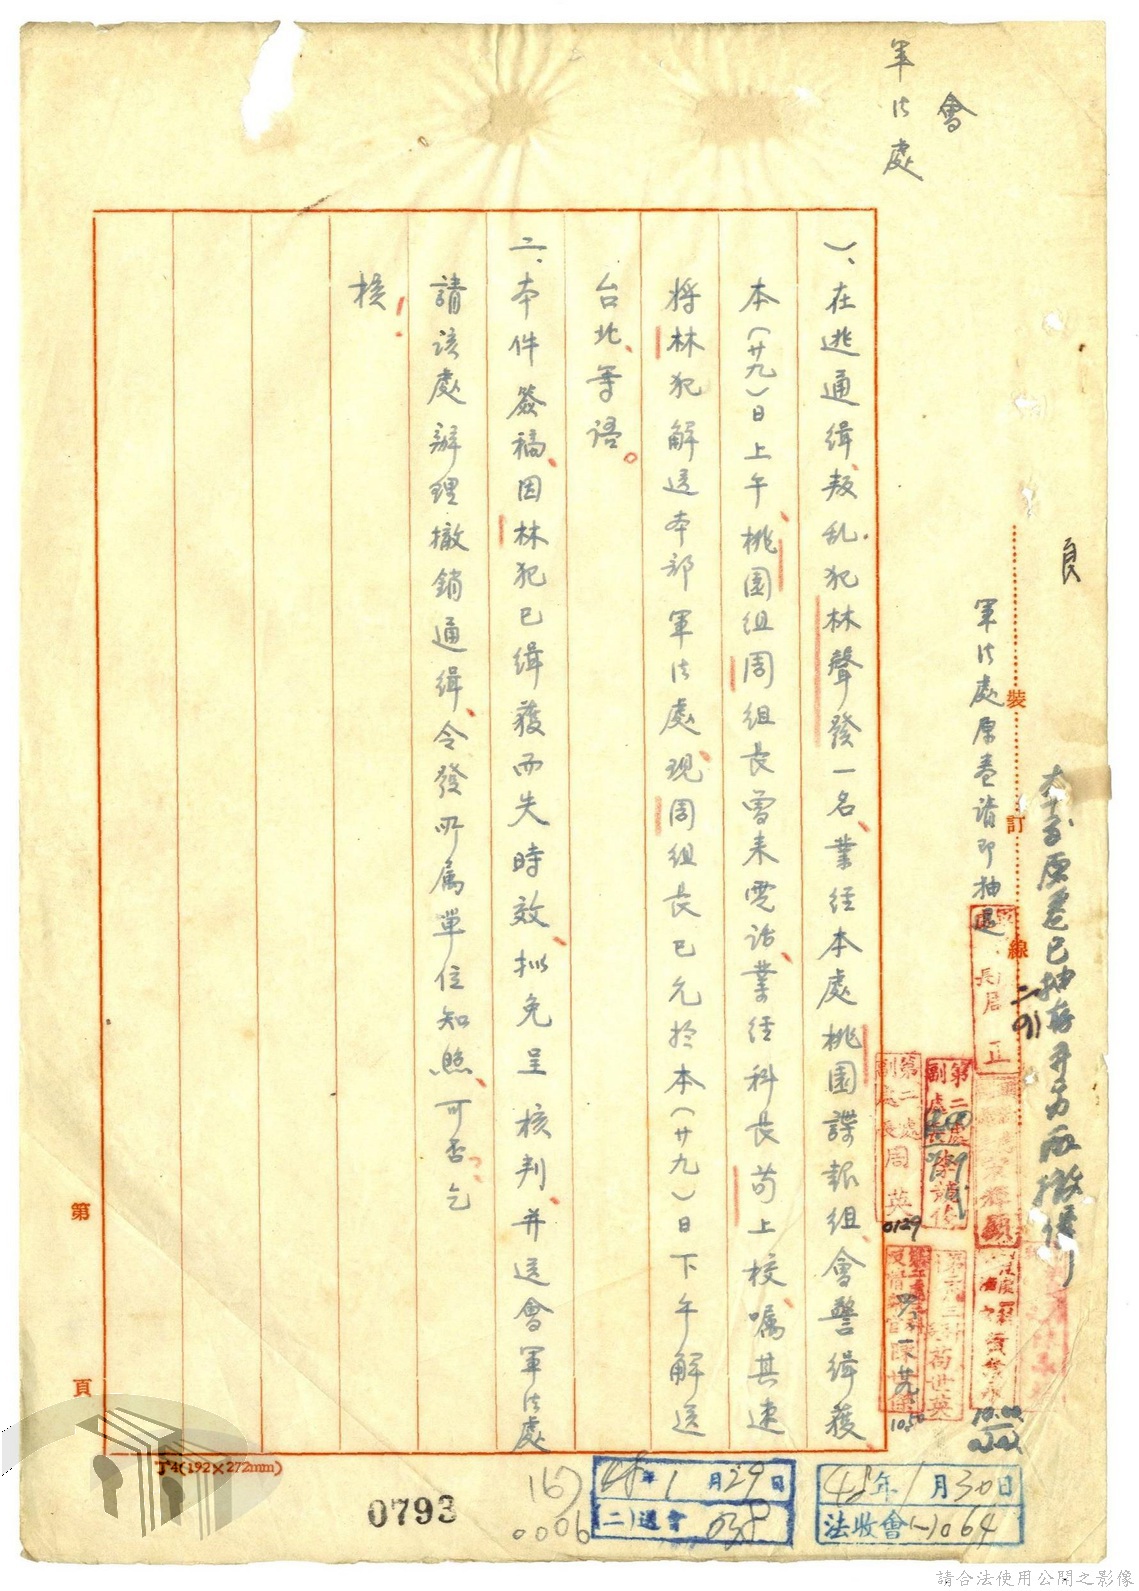 會
軍法處
一、在逃通缉叛乱犯林聲發一名、業经本處桃園諜報組、會警缉獲
本（廿九）日上午、桃園組周組長曾来電話、業经科長苟上校、嘱其速
将林犯解送本部軍法處、现周組長已允於本（廿九）日下午解送
台北、等语。
二、本件簽稿、因林犯已缉獲而失時效、拟免呈 核判、并送會軍法處
請该處辦理撤銷通缉、令發所属單位知照、可否、乞
核!
軍法處原卷请即抽還
原卷已抽存
裝
訂
線
第二處
副處長周英
0129
第二處
副處長
苟世英
1050
10.00
第
頁
丁4(192×272mm)
0793
0006
48年1月29日
(二)送會 038
48年1月30日
法收會(一)064
請合法使用公開之影像